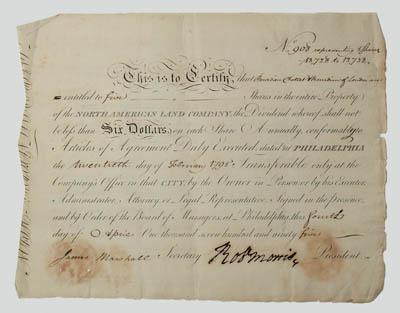 No. 908 representing 5 Shares
13,728 to 13,732.
This is to Certify, that
entitled to five Shares in the entire Property
of the NORTH AMERICAN LAND COMPANY; the Dividend whereof shall not
be less than Six Dollars on each Share Annually, conformably to
Articles of Agreement Duly Executed; dated at PHILADELPHIA
the twentieth day of February 1795. Transferable only at the
Company's Office in that CITY, by the Owner in Person or by his Executor,
Administrator, Attorney or Legal Representative. Signed in the presence
and by Order of the Board of Managers, at Philadelphia, this fourth
day of April One thousand seven hundred and ninety five
James Marshall Secretary Robt Morris President